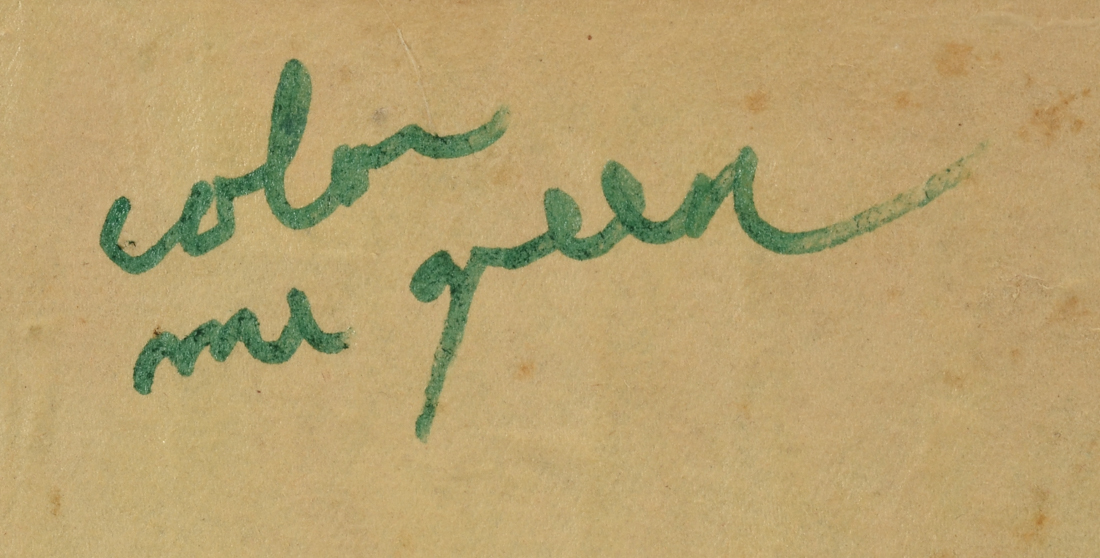 color
me green